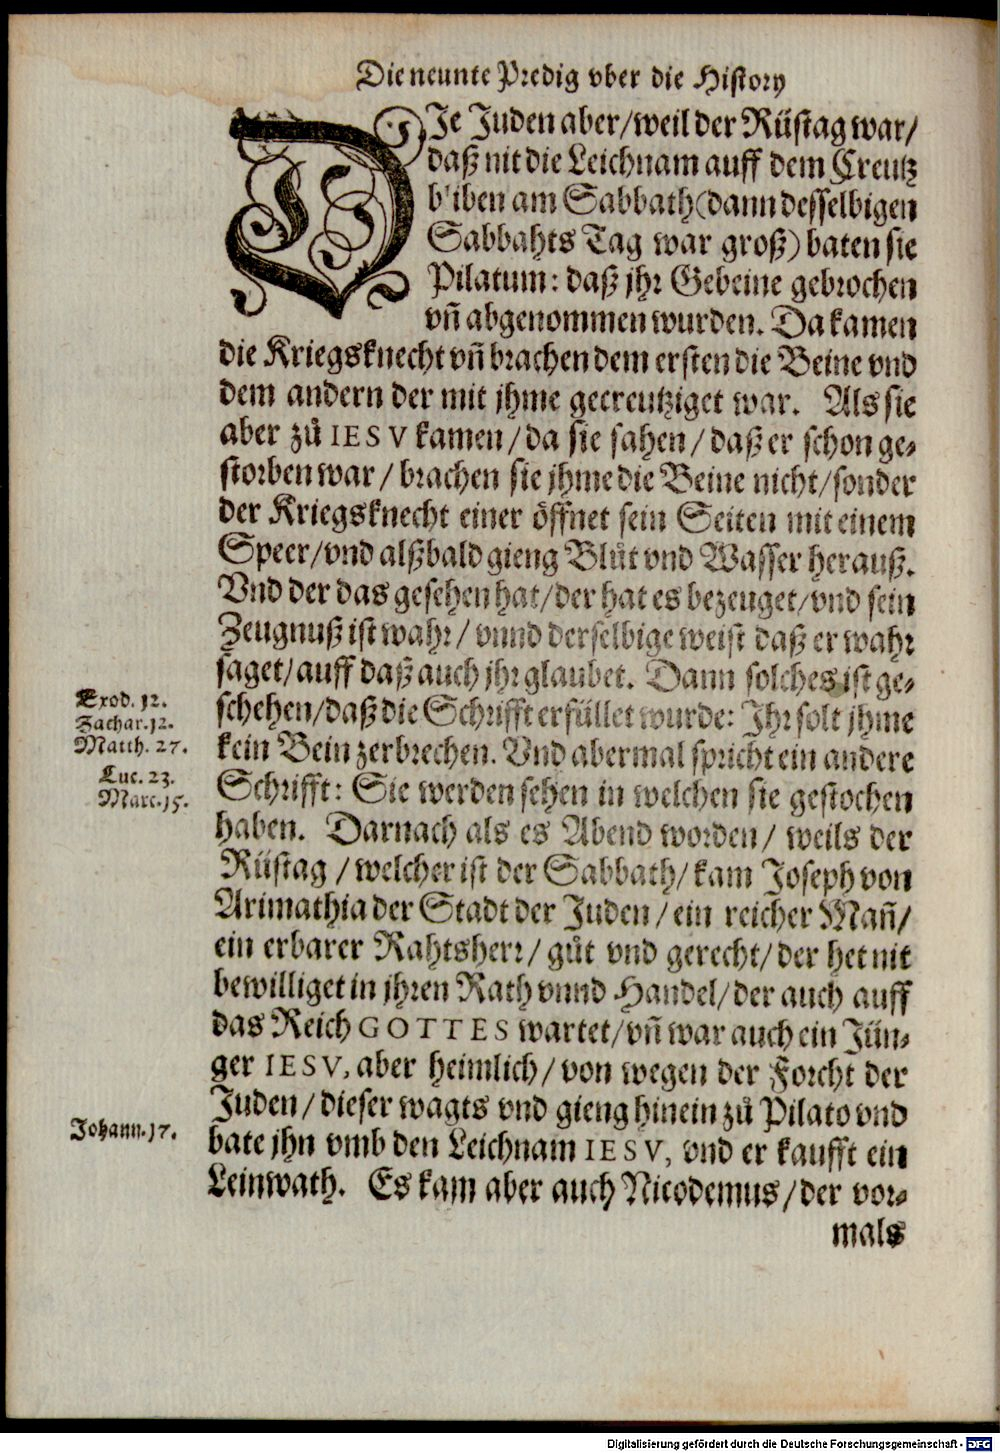 Die neunte Predig vber die History
DIe Juden aber/weil der Rüstag war/
daß nit die Leichnam auff dem Creutz
bliben am Sabbath(dann desselbigen
Sabbahts Tag war groß) baten sie
Pilatum: daß jhr Gebeine gebrochen
vñ abgenommen wurden. Da kamen
die Kriegsknecht vñ brachen dem ersten die Beine vnd
dem andern der mit jhme gecreutziget war. Als sie
aber zů IESV kamen/da sie sahen/daß er schon ge-
storben war/brachen sie jhme die Beine nicht/sonder
der Kriegsknecht einer öffnet sein Seiten mit einem
Speer/vnd alßbald gieng Blůt vnd Wasser herauß.
Vnd der das gesehen hat/der hat es bezeuget/vnd sein
Zeugnuß ist wahr/vnnd derselbige weist daß er wahr
saget/auff daß auch jhr glaubet. Dann solches ist ge-
Exod. 12.
schehen/daß die Schrifft erfüllet wurde: Ihr solt jhme
Zachar. 12.
Matth. 27.
kein Bein zerbrechen. Vnd abermal spricht ein andere
Luc. 23.
Schrifft: Sie werden sehen in welchen sie gestochen
Marc. 15.
haben. Darnach als es Abend worden/weils der
Rüstag/welcher ist der Sabbath/kam Joseph von
Arimathia der Stadt der Juden/ein reicher Mañ/
ein erbarer Rahtsherr/gůt vnd gerecht/der het nit
bewilliget in jhren Rath vnnd Handel/der auch auff
das Reich GOTTES wartet/vñ war auch ein Jün-
ger IESV, aber heimlich/von wegen der Forcht der
Juden/dieser wagts vnd gieng hinein zů Pilato vnd
Johann. 17.
bate jhn vmb den Leichnam IESV, vnd er kaufft ein
Leinwath. Es kam aber auch Nicodemus/der vor-
mals
Digitalisierung gefördert durch die Deutsche Forschungsgemeinschaft - DFG